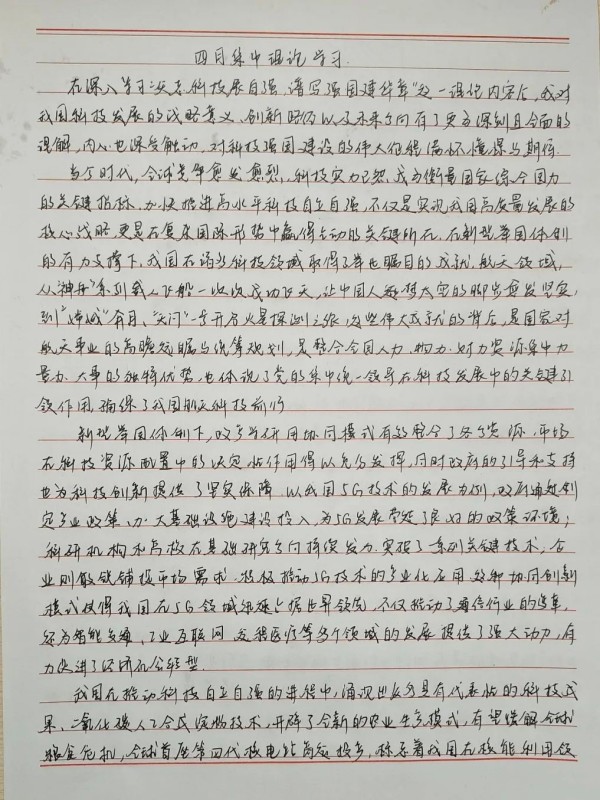 四月集中理论学习
在深入学习"关于科技展自强，谱写强国建华章"这一理论内容后，我对
我国科技发展的战略意义、创新路径以及未来方向有了更为深刻且全面的
理解，内心也深受触动，对科技强国建设的伟大征程满怀憧憬与期待。
当今时代，全球竞争愈发激烈，科技实力已然成为衡量国家综合国力
的关键指标，加快推进高水平科技自立自强，不仅是实现我国高质量发展的
核心战略，更是在复杂国际形势中赢得主动的关键所在。在新型举国体制
的有力支撑下，我国在诸多科技领域取得了举世瞩目的成就，航天领域，
从"神舟"系列载人飞船一次次成功飞天，让中国人逐梦太空的脚步愈发坚实，
到"嫦娥"奔月、"天问"一号开启火星探测之旅，这些伟大成就的背后，是国家对
航天事业的高瞻远瞩与统筹规划，是整合全国人力、物力、财力资源集中力
量办大事的独特优势，也体现了党的集中统一领导在科技发展中的关键引
领作用，确保了我国航天科技前行
新型举国体制下，政产学研用协同模式有效整合了各方资源，市场
在科技资源配置中的决定性作用得以充分发挥，同时政府的引导和支持
也为科技创新提供了坚实保障。以我国5G技术的发展为例，政府通过制
定产业政策、加大基础设施建设投入，为5G发展营造了良好的政策环境；
科研机构和高校在基础研究方向持续发力，突破了一系列关键技术，企
业则敏锐捕捉市场需求，积极推动5G技术的产业化应用，这种协同创新
模式使得我国在5G领域迅速占据世界领先，不仅推动了通信行业的变革，
还为智能交通、工业互联网、远程医疗等多个领域的发展提供了强大动力，有
力促进了经济社会转型。
我国在推动科技自立自强的进程中，涌现出众多具有代表性的科技成
果，二氧化碳人工合成淀粉技术，开辟了全新的农业生产模式，有望缓解全球
粮食危机，全球首座第四代核电站商运投产，标志着我国在核能利用领